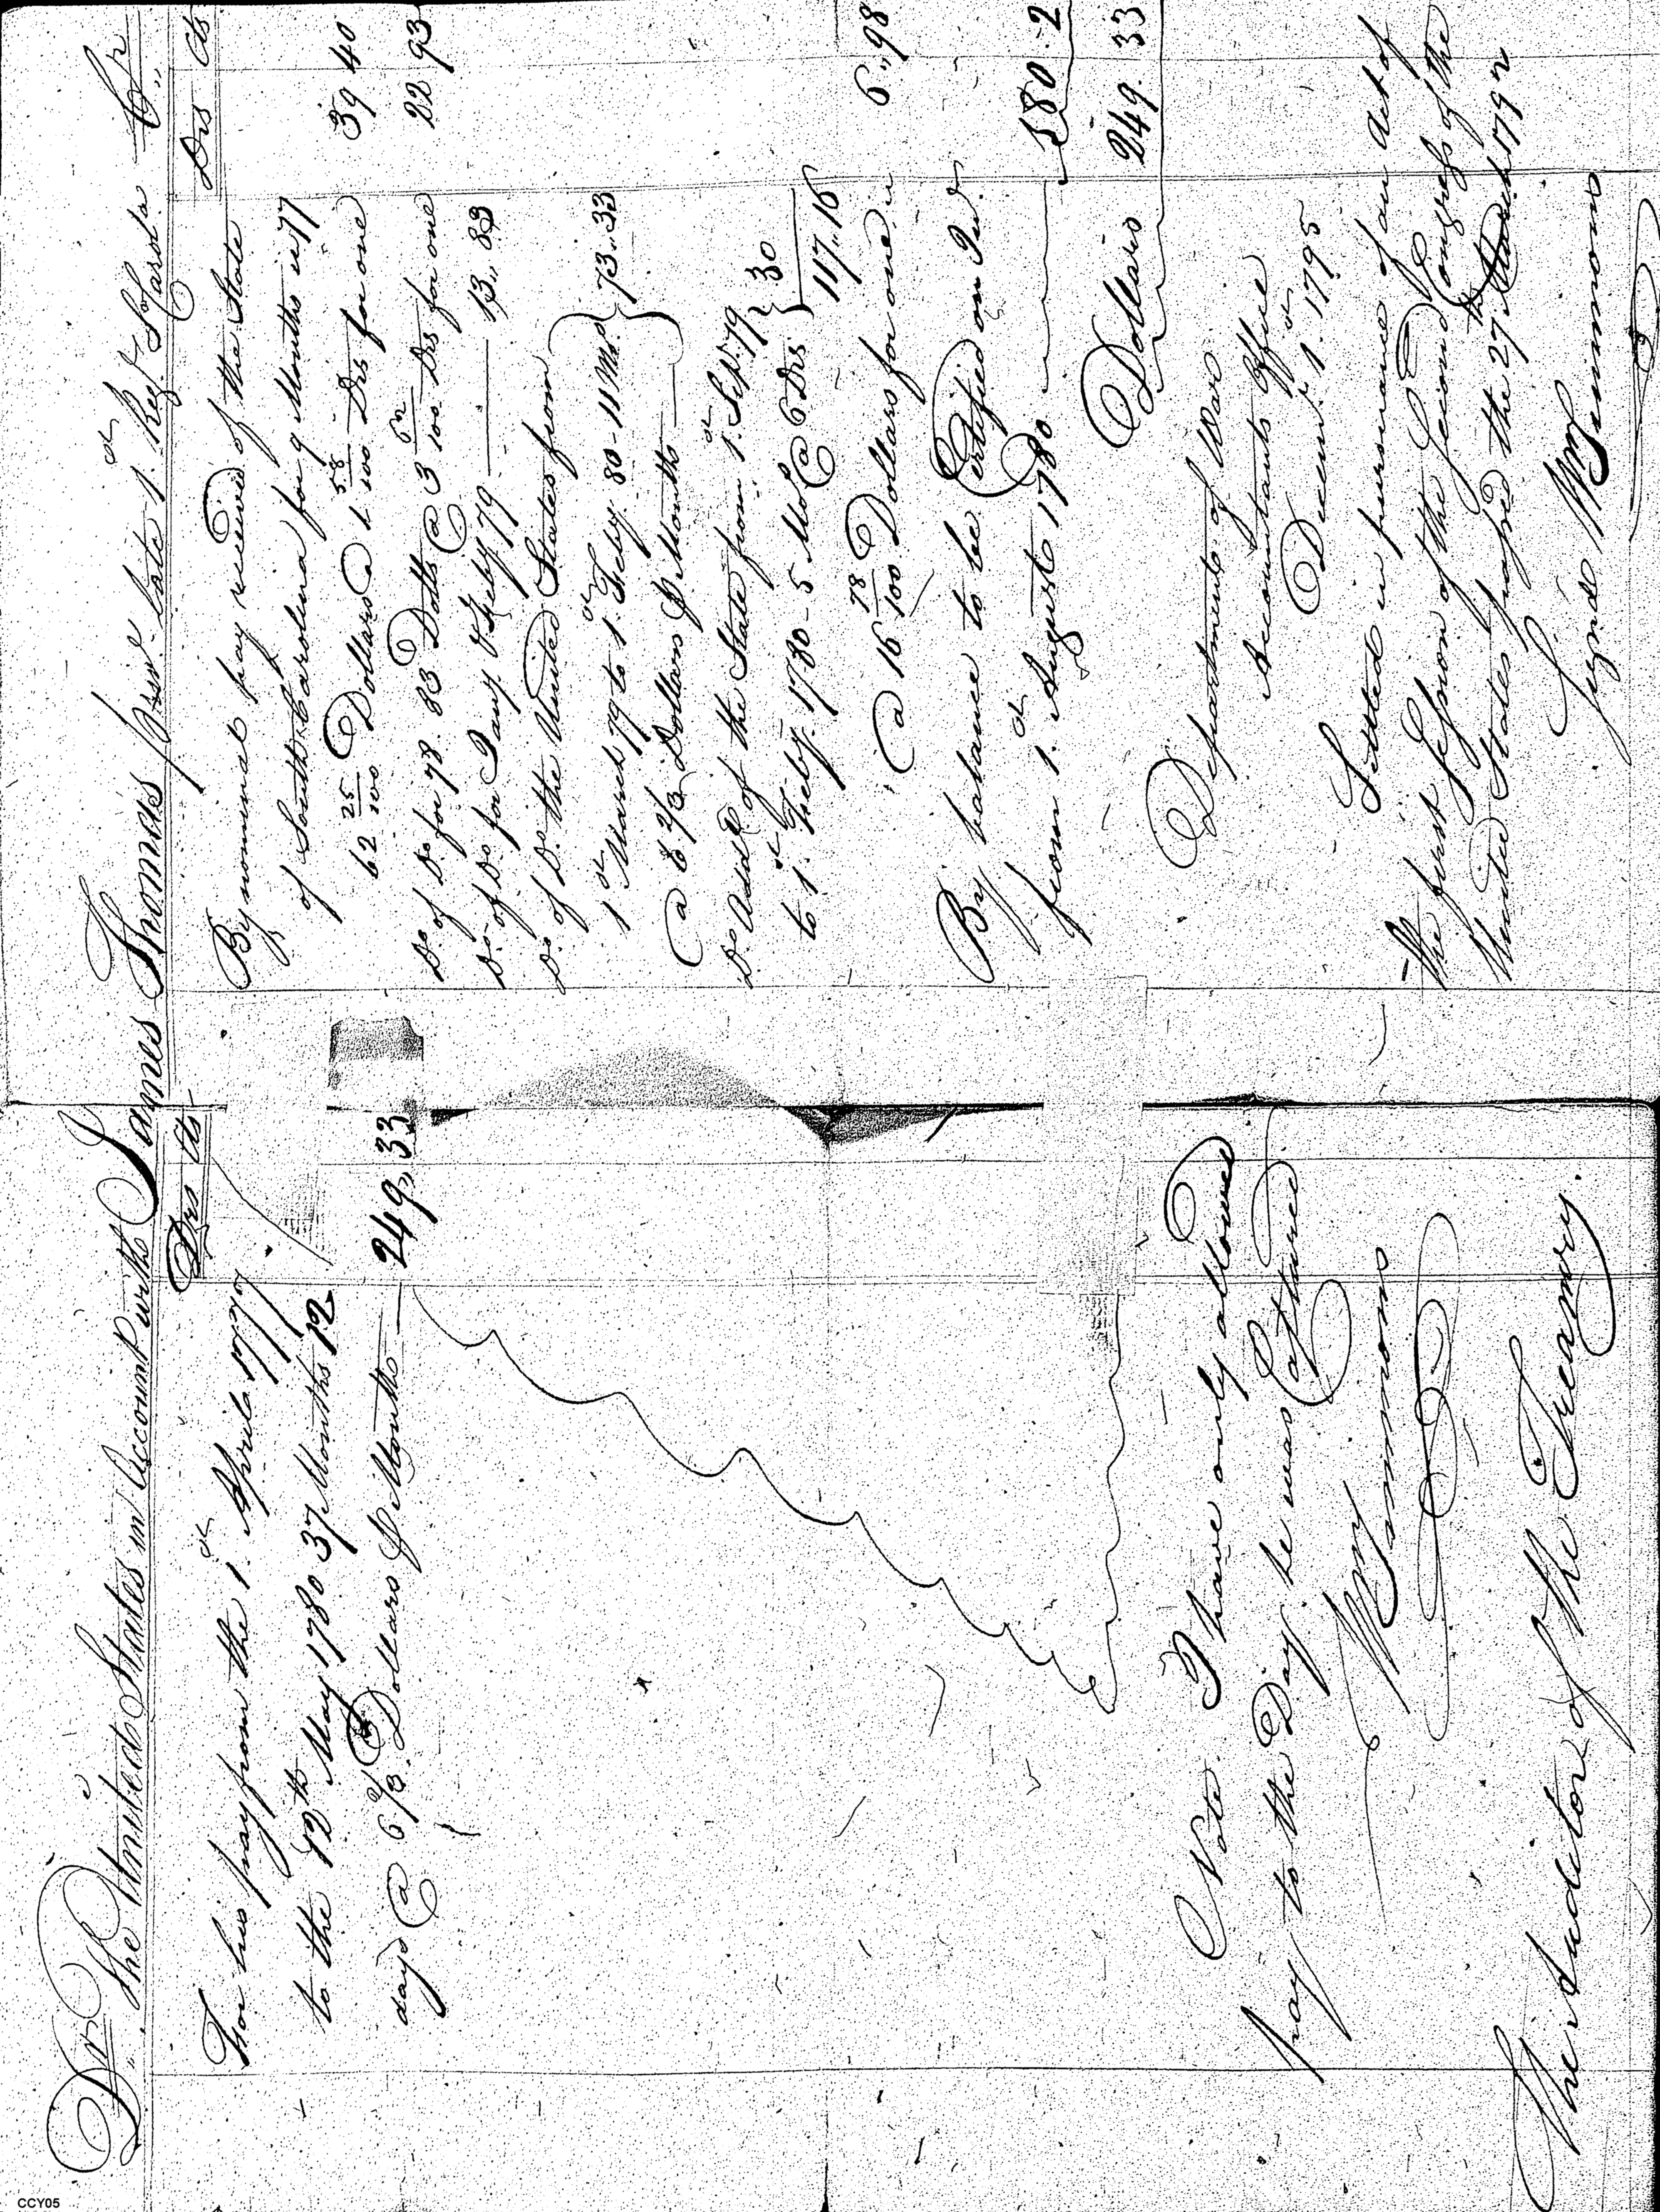 Dr. The United States in Account with James Thomas priv.e late 1.st Reg.t S.o Carola Cr.,,
Drs Cts
For his pay from the 1.st April 1777
to the 12th May 1780 37 Months 12
days @ 6 2/3 Dollars P Month — 249,,33
Note. I have only allowed
pay to the Day he was Captured
Wm Simmons
The Auditor of the Treasury.
Drs Cts
By nominal pay received of the State
of South Carolina for 9 Months in 77
62 25/100 Dollars @ 1 58/100 Drs for one 39 40
D.o of D.o for 78. 83 Dolls @ 3 62/100 Drs for one 22 93
D.o of D.o for Jany & Feby 79 — 13,,83
D.o of D.o the United States from
1st March 79 to 1.st Feby 80 - 11 Mos. } 73,,33
@ 6 2/3 Dollars P Month —
D.o Addl of the State from 1.st Sep.r 79
to 1.st Feby. 1780 - 5 Mos @ 6 Drs } 30
117,,16
@ 16 78/100 Dollars for one is 6,,98
By balance to be Certified on Int.
from 1.st August 1780 — 180.. 2
Dollars 249. 33
Department of War
Accountants Office
Decemr 1.st 1795
Settled in pursuance of an Act of
the first Session of the Second Congress of the
United States passed the 27th March 1792
Signd Wm Simmons
CCY05